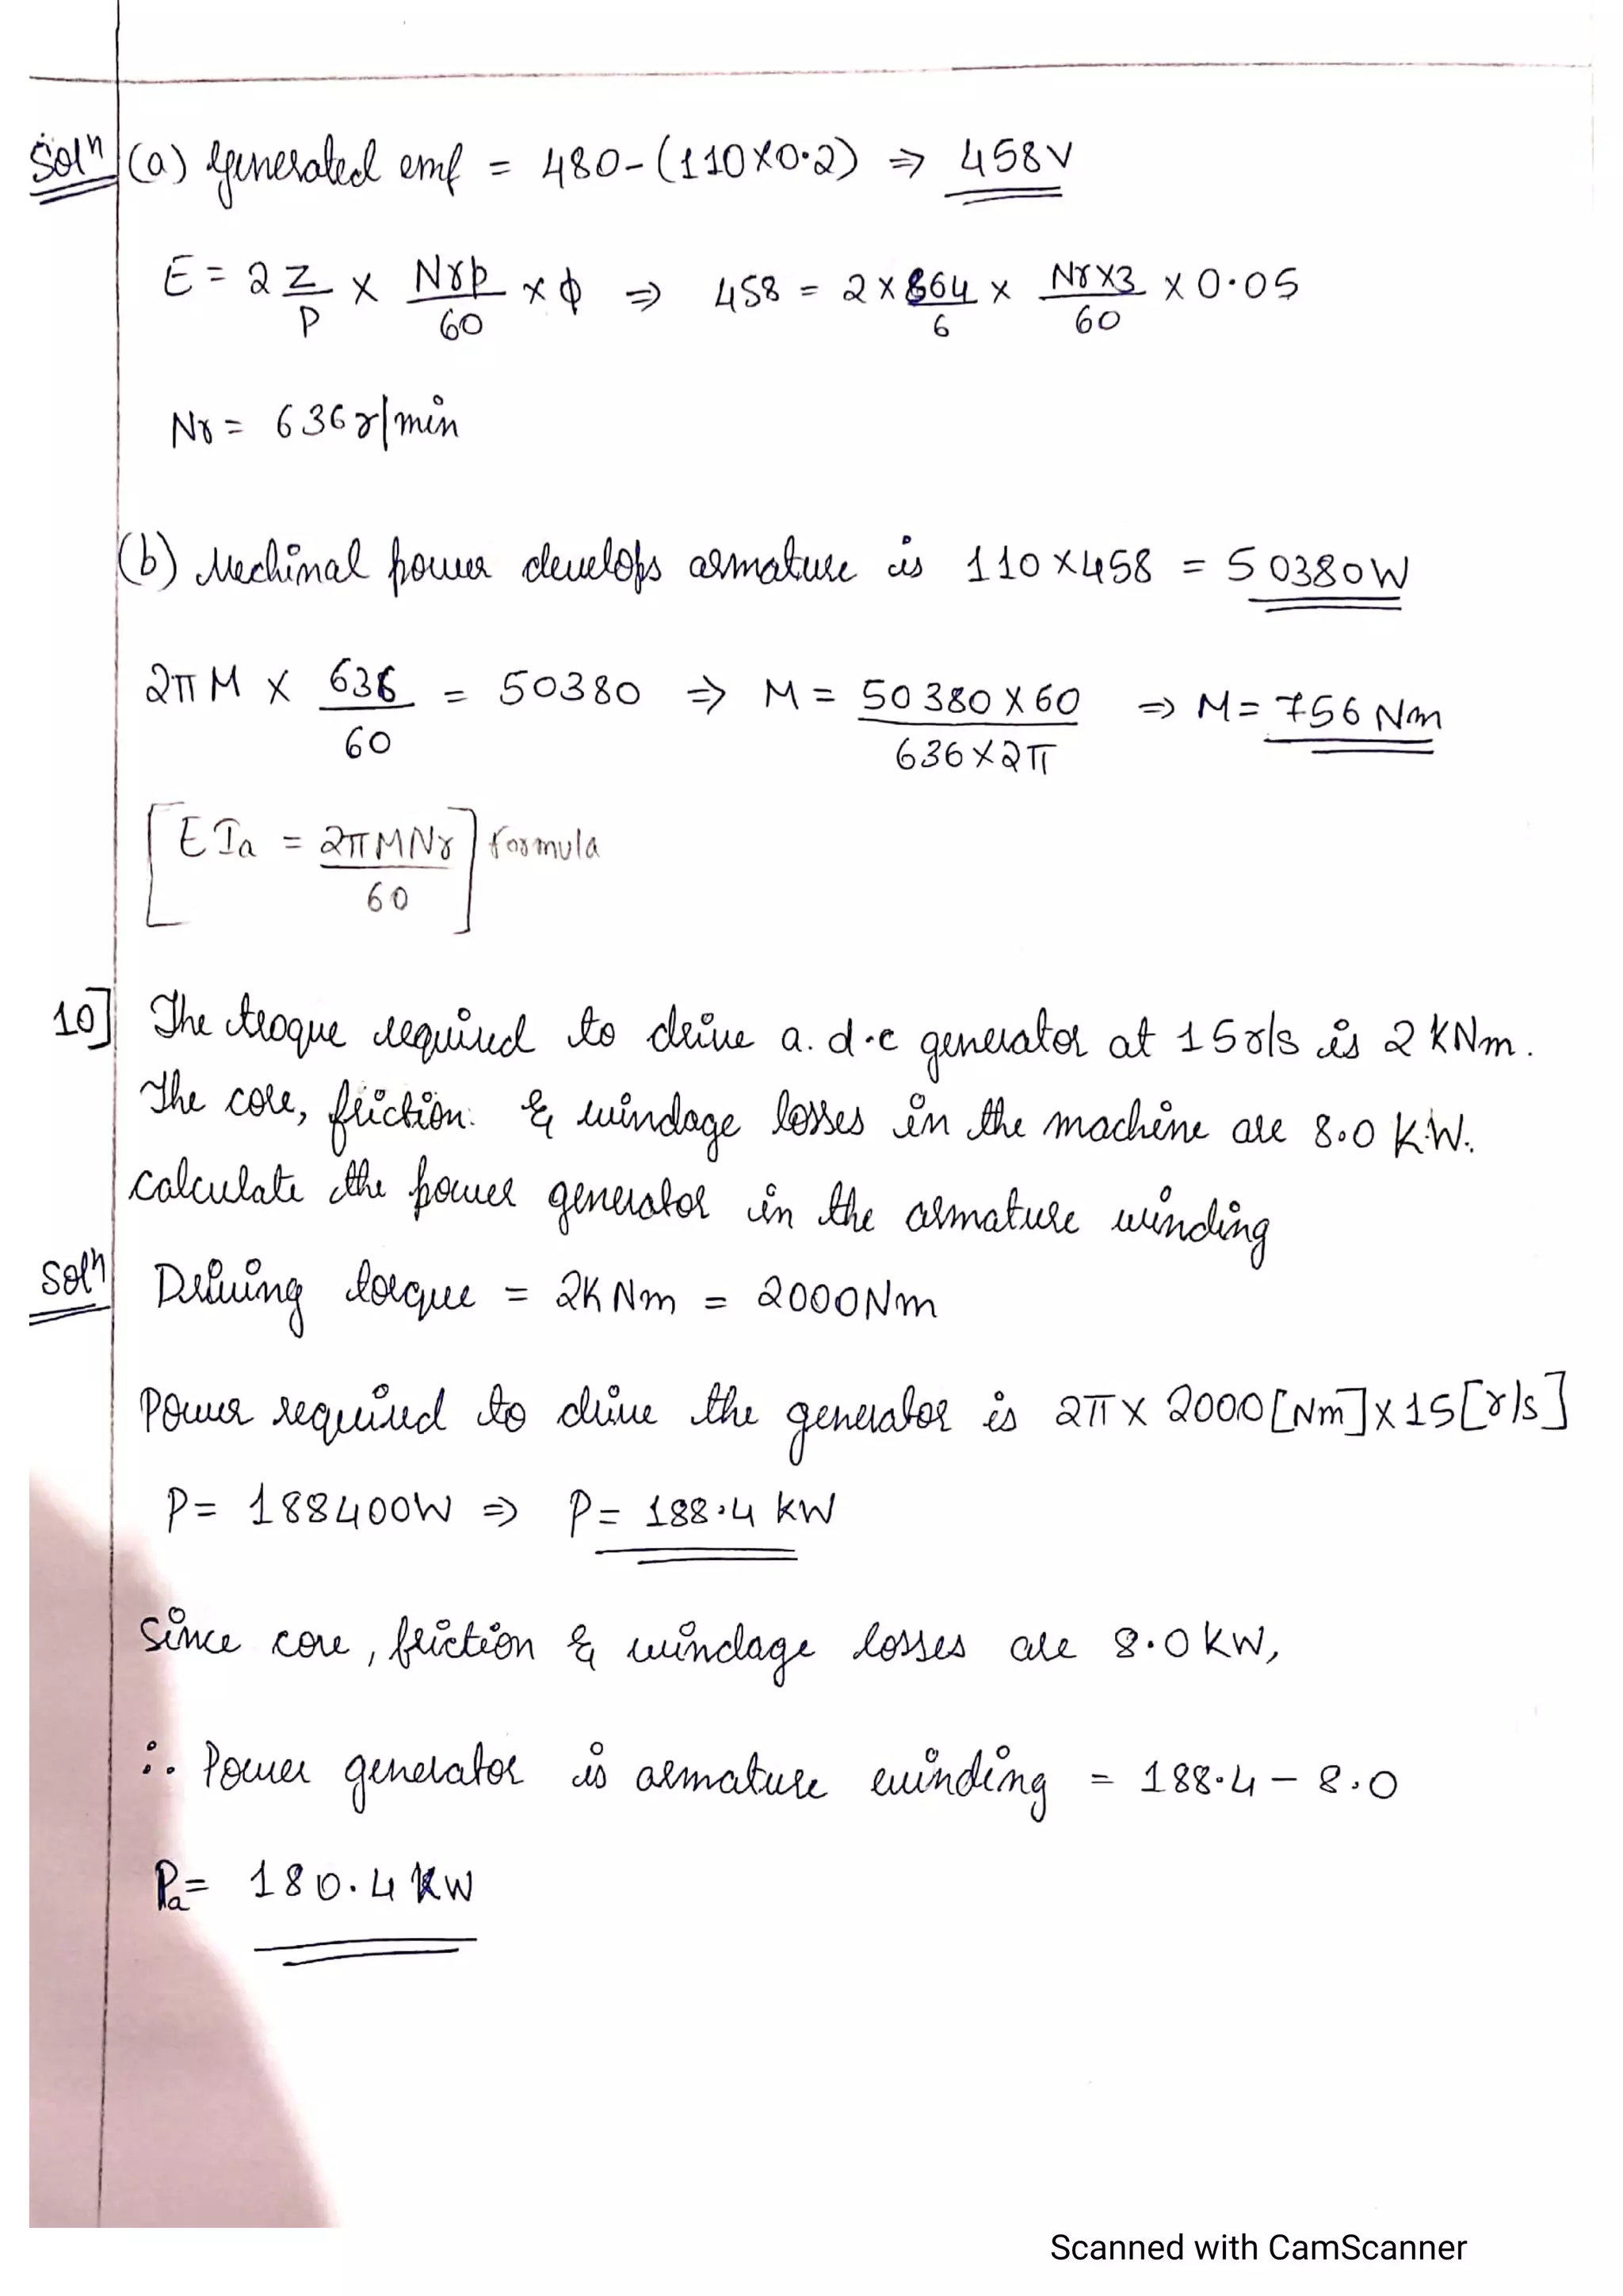 Soln (a) generated emf = 480-(110×0.2) ⇒ 458V
E = 2 Z/P × Nrp/60 × ϕ ⇒ 458 = 2×864/6 × Nr×3/60 × 0.05
Nr = 636r/min
(b) Mechinal power develops armature is 110×458 = 50380W
2πM × 636/60 = 50380 ⇒ M = 50380×60/636×2π ⇒ M = 756 Nm
[EIa = 2πMNr/60] formula
10] The troque required to drive a. d.c generator at 15r/s is 2 kNm.
The core, friction. & windage losses in the machine are 8.0 KW.
calculate the power generator in the armature winding
Soln Driving torque = 2KNm = 2000Nm
Power required to drive the generator is 2π× 2000[Nm]×15[r/s]
P= 188400W ⇒ P= 188.4 kW
Since core, friction & windage losses are 8.0KW,
∴ Power generator is armature winding = 188.4 - 8.0
Pa= 180.4KW
Scanned with CamScanner